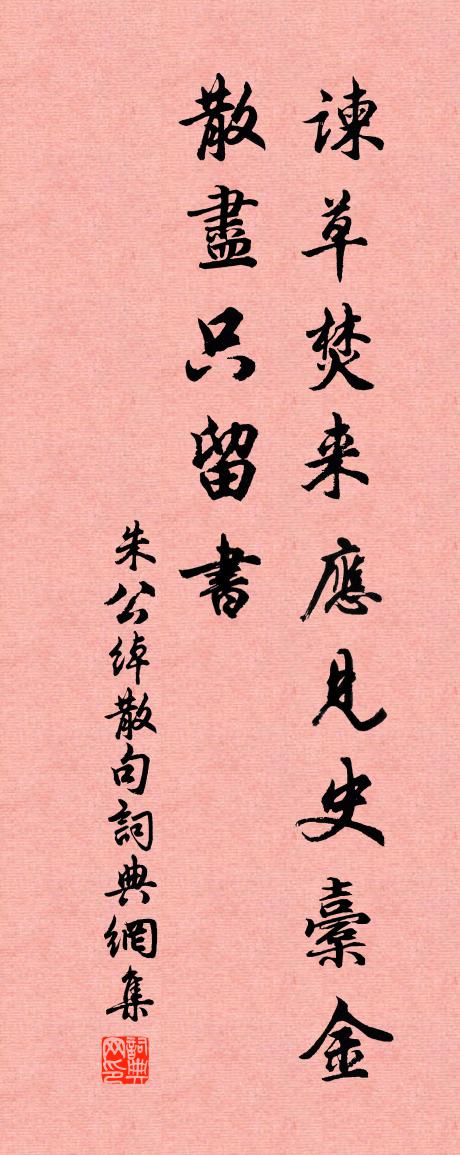 諫草焚來應見史橐金
散盡只留書
朱公綽散句詞典網集
詞典网印